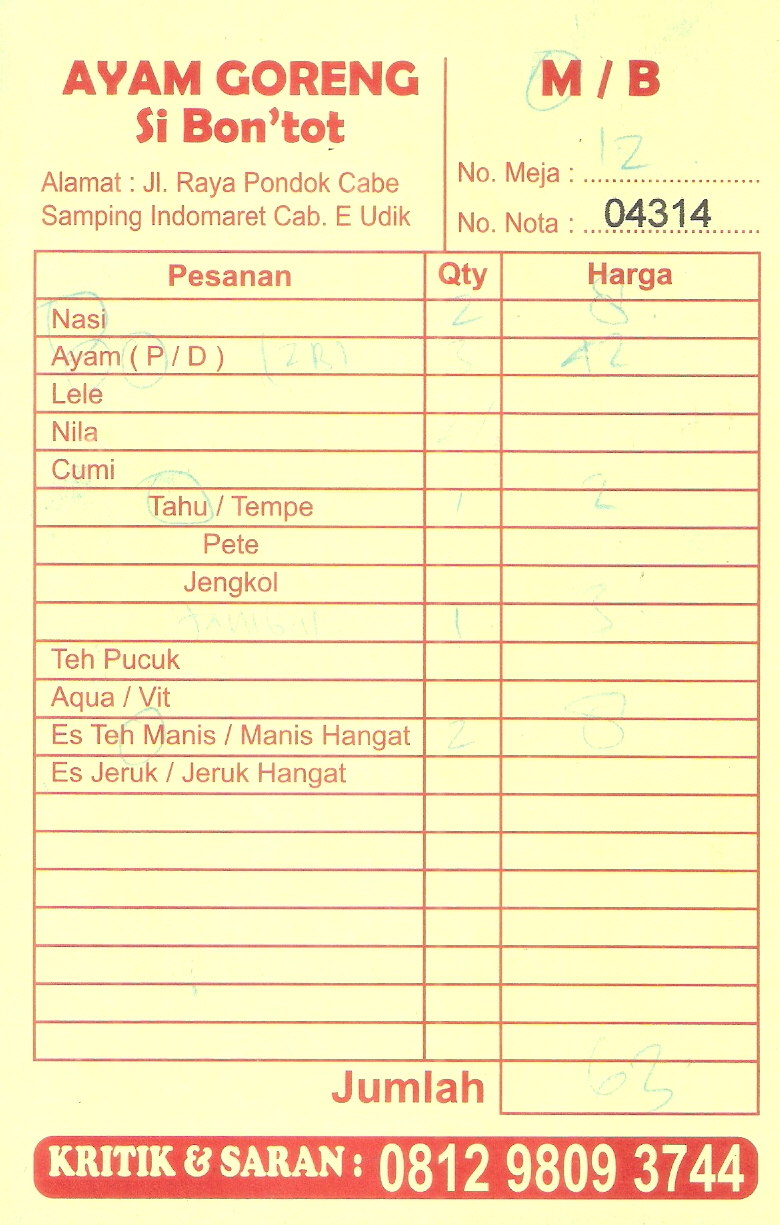 AYAM GORENG
Si Bon'tot
Alamat : Jl. Raya Pondok Cabe
Samping Indomaret Cab. E Udik
M / B
No. Meja : 12
No. Nota : 04314
Pesanan Qty Harga
Nasi 2 8
Ayam ( P / D ) 3 42
Lele
Nila
Cumi
Tahu / Tempe 1 2
Pete
Jengkol
1 3
Teh Pucuk
Aqua / Vit
Es Teh Manis / Manis Hangat 2 8
Es Jeruk / Jeruk Hangat
Jumlah 63
KRITIK & SARAN : 0812 9809 3744